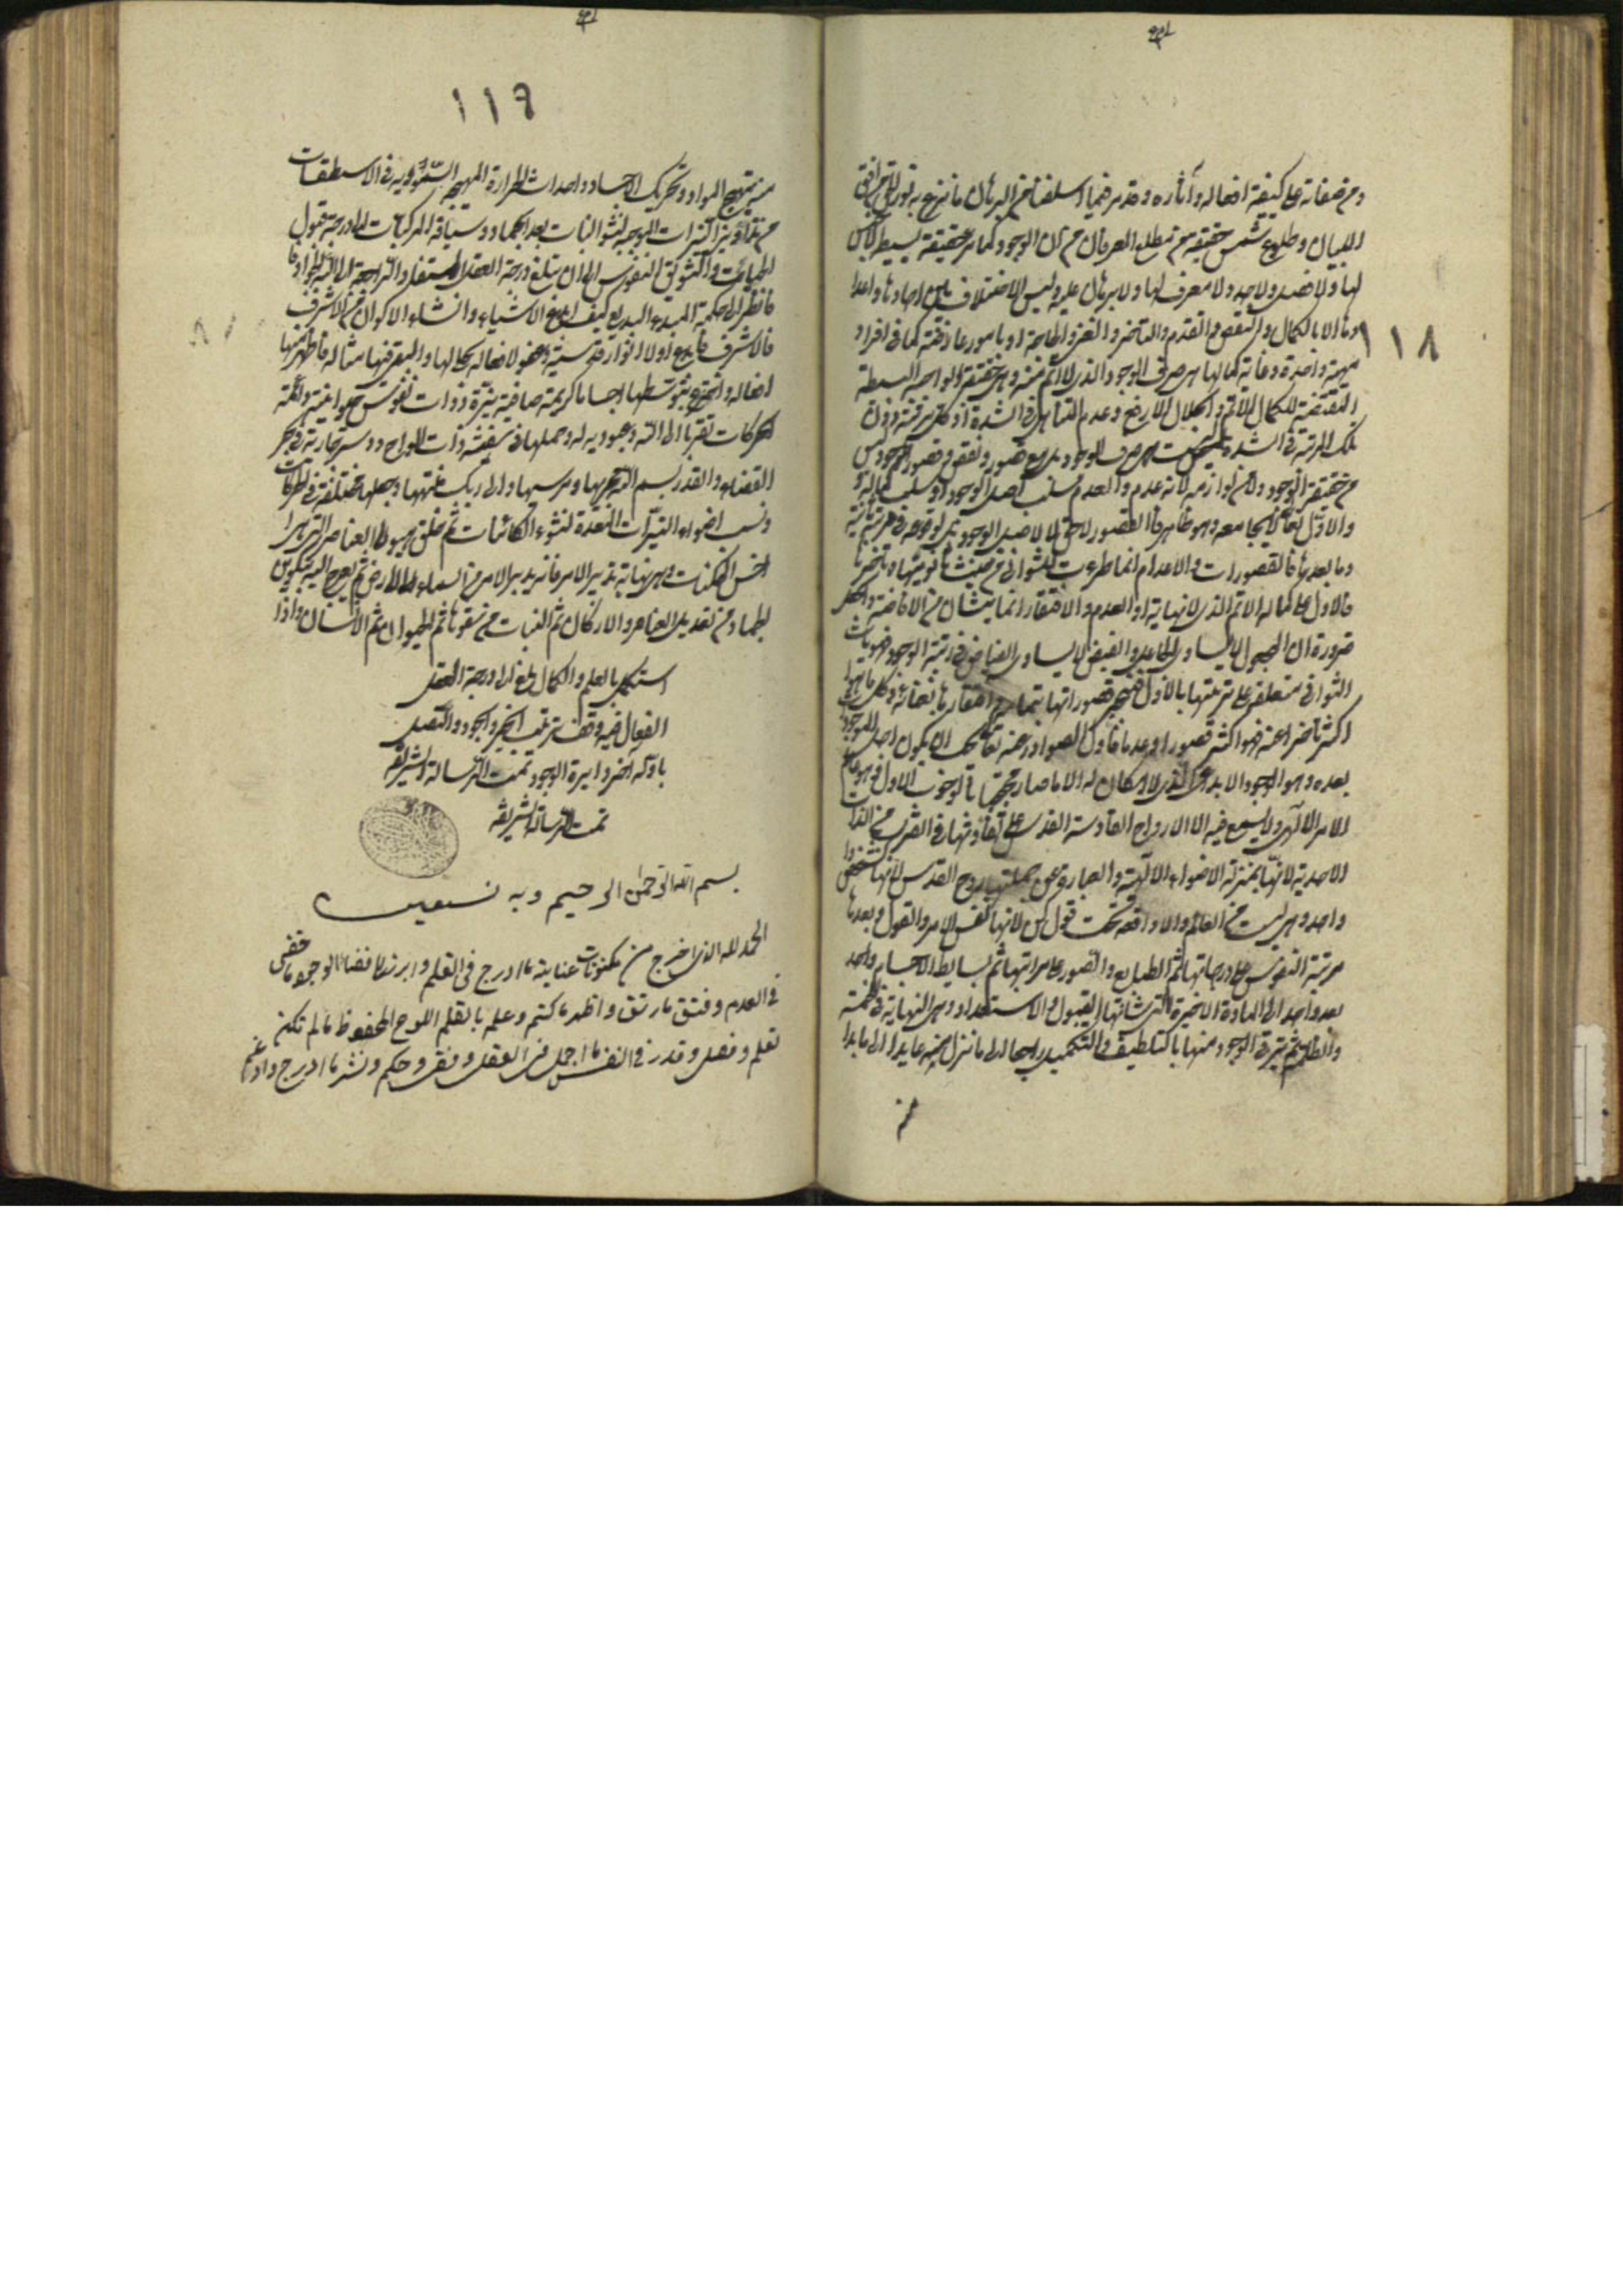 ١١٨
ومن صفاته على كيفية افعاله وآثاره
البيان وطلوع شمس حقيقته من مطلع العرفان من ان الوجود كما مر حقيقة بسيطة لا جنس
لها ولا فصل ولا حد ولا معرف لها ولا برهان عليه وليس الاختلاف بين احادها واعدا
دها الا بالكمال والنقص والتقدم والتأخر والغنى والحاجة او بامور عارضة كما في افراد
مهية واحدة وغاية كمالها هي صرف الوجود الذي لا اتم منه وهي حقيقة الواجبية البسيطة
المقتضية للكمال الاتم والجلال الارفع وعدم التناهي في الشدة اذ كل مرتبة دون
تلك المرتبة في الشدة ليست هي صرف الوجود بل مع قصور ونقص وقصور الوجود ليس
من حقيقة الوجود ولا من لوازمه لانه عدم والعدم سلب اصل الوجود او سلب كماله
والاول تعالى لا يجامعه وهو ظاهر فالقصور لاحق لا لاصل الوجود بل لوقوعه في مرتبة ثانية
وما بعدها فالقصورات والاعدام انما طرءت للثواني من حيث ثانويتها وتأخرها
فالاول على كماله الاتم الذي لا نهاية له والعدم والافتقار انما ينشان من الافاضة والجعل
ضرورة ان المجعول لا يساوي الجاعل والفيض لا يساوي الفياض في رتبة الوجود فهويات
الثواني متعلقة على ترتيبها بالاول فتنجبر قصوراتها بتمامه وافتقارها بغنائه وكل ما هو
اكثر تأخرا عنه فهو اكثر قصورا وعدما فاول الصوادر عنه تعالى يجب ان يكون اجل الموجودات
بعده وهو الوجود الابداعي الذي لا امكان له الا ما صار محتجبا بالوجوب الاول وهو عالم
الامر الالهي ولا يسع فيه الا الارواح القادسة القدسية على تفاوتها في القرب من الذات
الاحدية لانها بمنزلة الاضواء الالهية والعبارة عن جملتها روح القدس لانها كشخص
واحد وهي ليست من العالم ولا واقعة تحت قول كن لانها نفس الامر والقول وبعدها
مرتبة النفوس على درجاتها ثم الطبايع والصور على مراتبها ثم بسايط الاجسام واحد
بعد واحد الى المادة الاخيرة التي شانها القبول والاستعداد وهي النهاية في الخسة
والظلمة ثم يترقى الوجود منها بالتلطيف والتكميل راجعا الى ما نزل منه عايدا الى ما بدا
منه
١١٩
منه بتهييج المواد وتحريك الاجساد واحداث الحرارة المهيجة السماوية في الاسطقسات
من تداوير النيرات الموجبة لنشو النبات بعد الجماد وسياقة المركبات الى درجة قبول
الحياة وتشويق النفوس الى ان يبلغ درجة العقل المستفاد الراجعة الى الله الجواد
فانظر الى حكمة المبدع البديع كيف ابدع الاشياء وانشاء الاكوان من الاشرف
فالاشرف فابدع اولا انوارا قدسية وعقولا فعالة تجلى لها والقى فيها مثاله فاظهر منها
افعاله واخترع بتوسطها اجساما كريمة صافية نيرة ذوات نفوس حيوانية دائمة
الحركات تقربا الى الله وعبودية له وحملها في سفينة ذات الواح ودسر جارية في بحر
القضاء والقدر بسم الله مجريها ومرسيها والى ربك منتهيها وجعلها مختلفة في الحركات
ونسب اضواء النيرات المعدة لنشوء الكائنات ثم خلق هيولى العناصر التي هي
اخس الممكنات وهي نهاية تدبير الامر فانه يدبر الامر من السماء الى الارض ثم يعرج اليه بتكوين
الجماد من تعديل العناصر والاركان ثم النبات من صفوتها ثم الحيوان ثم الانسان واذا
استكمل بالعلم والكمال بلغ الى درجة العقل
الفعال فيه وقف ترتيب الخير والجود واتصل
باوله اخر دايرة الوجود تمت الرسالة الشريفة
تمت الرسالة الشريفة
بسم الله الرحمن الرحيم وبه نستعين
الحمد لله الذي اخرج من مكنونات عنايته ما ادرج في القلم وابرز الى فضاء الوجود ما خفي
في العدم وفتق ما رتق واظهر ما كتم وعلم بالقلم اللوح المحفوظ ما لم تكن
تعلم وفصل وقدر في النفس ما اجمل في العقل وقضى وحكم ونشر ما ادرج وادغم